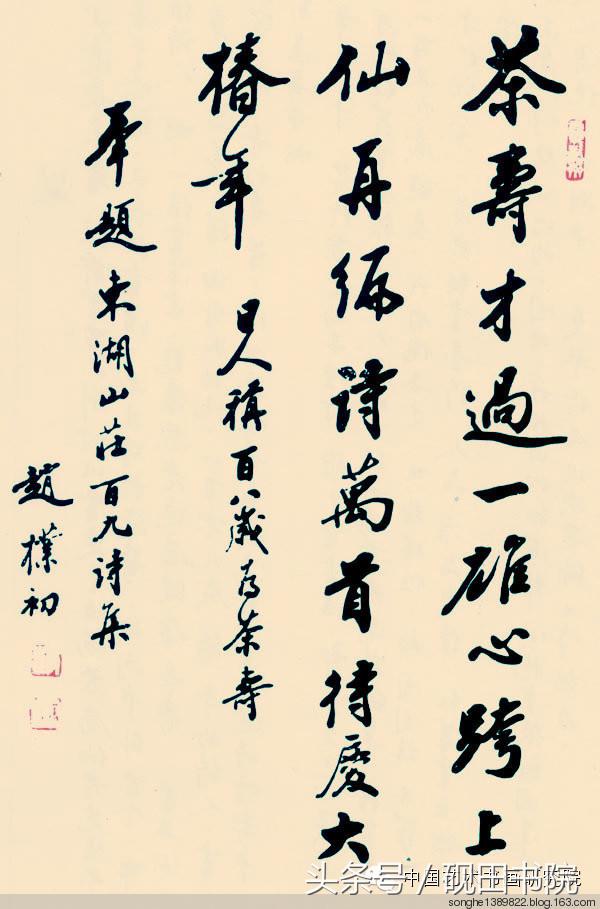 茶壽才過一雄心跨上
仙再編詩萬首待慶大
椿年 日人稱百八歲為茶壽
奉題東湖山莊百九詩集
趙樸初
头条号／砚田书院
songhe1389822.blog.163.com